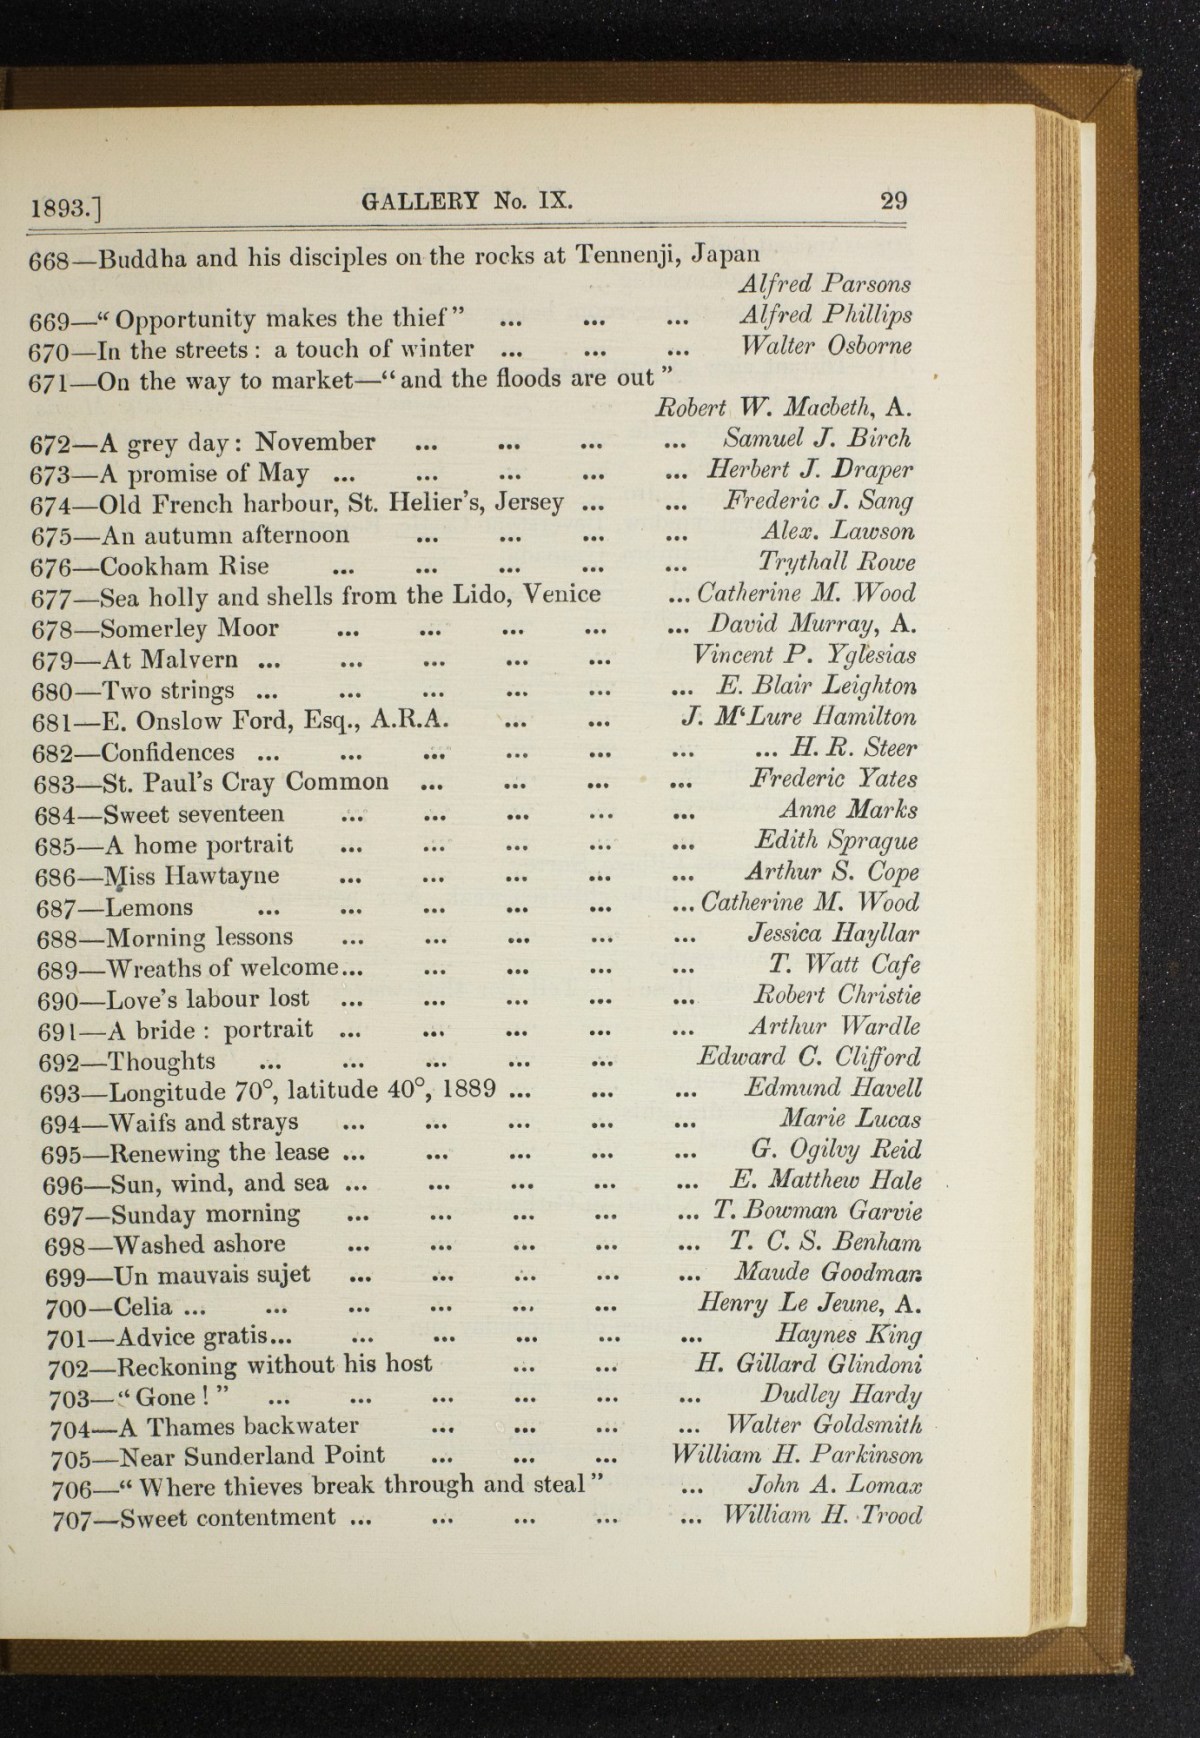 1893.] GALLERY No. IX. 29
668—Buddha and his disciples on the rocks at Tennenji, Japan
Alfred Parsons
669—“Opportunity makes the thief” ... ... ... Alfred Phillips
670—In the streets: a touch of winter ... ... ... Walter Osborne
671—On the way to market—“and the floods are out”
Robert W. Macbeth, A.
672—A grey day: November ... ... ... ... Samuel J. Birch
673—A promise of May ... ... ... ... ... Herbert J. Draper
674—Old French harbour, St. Helier’s, Jersey ... ... Frederic J. Sang
675—An autumn afternoon ... ... ... ... Alex. Lawson
676—Cookham Rise ... ... ... ... ... Trythall Rowe
677—Sea holly and shells from the Lido, Venice ... Catherine M. Wood
678—Somerley Moor ... ... ... ... ... David Murray, A.
679—At Malvern ... ... ... ... ... Vincent P. Yglesias
680—Two strings ... ... ... ... ... ... E. Blair Leighton
681—E. Onslow Ford, Esq., A.R.A. ... ... J. M‘Lure Hamilton
682—Confidences ... ... ... ... ... ... ... H. R. Steer
683—St. Paul’s Cray Common ... ... ... ... Frederic Yates
684—Sweet seventeen ... ... ... ... ... Anne Marks
685—A home portrait ... ... ... ... ... Edith Sprague
686—Miss Hawtayne ... ... ... ... ... Arthur S. Cope
687—Lemons ... ... ... ... ... ... Catherine M. Wood
688—Morning lessons ... ... ... ... ... Jessica Hayllar
689—Wreaths of welcome... ... ... ... ... T. Watt Cafe
690—Love’s labour lost ... ... ... ... ... Robert Christie
691—A bride: portrait ... ... ... ... ... Arthur Wardle
692—Thoughts ... ... ... ... ... Edward C. Clifford
693—Longitude 70°, latitude 40°, 1889 ... ... ... Edmund Havell
694—Waifs and strays ... ... ... ... ... Marie Lucas
695—Renewing the lease ... ... ... ... ... G. Ogilvy Reid
696—Sun, wind, and sea ... ... ... ... ... E. Matthew Hale
697—Sunday morning ... ... ... ... ... T. Bowman Garvie
698—Washed ashore ... ... ... ... ... T. C. S. Benham
699—Un mauvais sujet ... ... ... ... ... Maude Goodman
700—Celia ... ... ... ... ... ... Henry Le Jeune, A.
701—Advice gratis... ... ... ... ... ... Haynes King
702—Reckoning without his host ... ... H. Gillard Glindoni
703—“Gone!” ... ... ... ... ... ... Dudley Hardy
704—A Thames backwater ... ... ... ... Walter Goldsmith
705—Near Sunderland Point ... ... ... William H. Parkinson
706—“Where thieves break through and steal” ... John A. Lomax
707—Sweet contentment ... ... ... ... ... William H. Trood